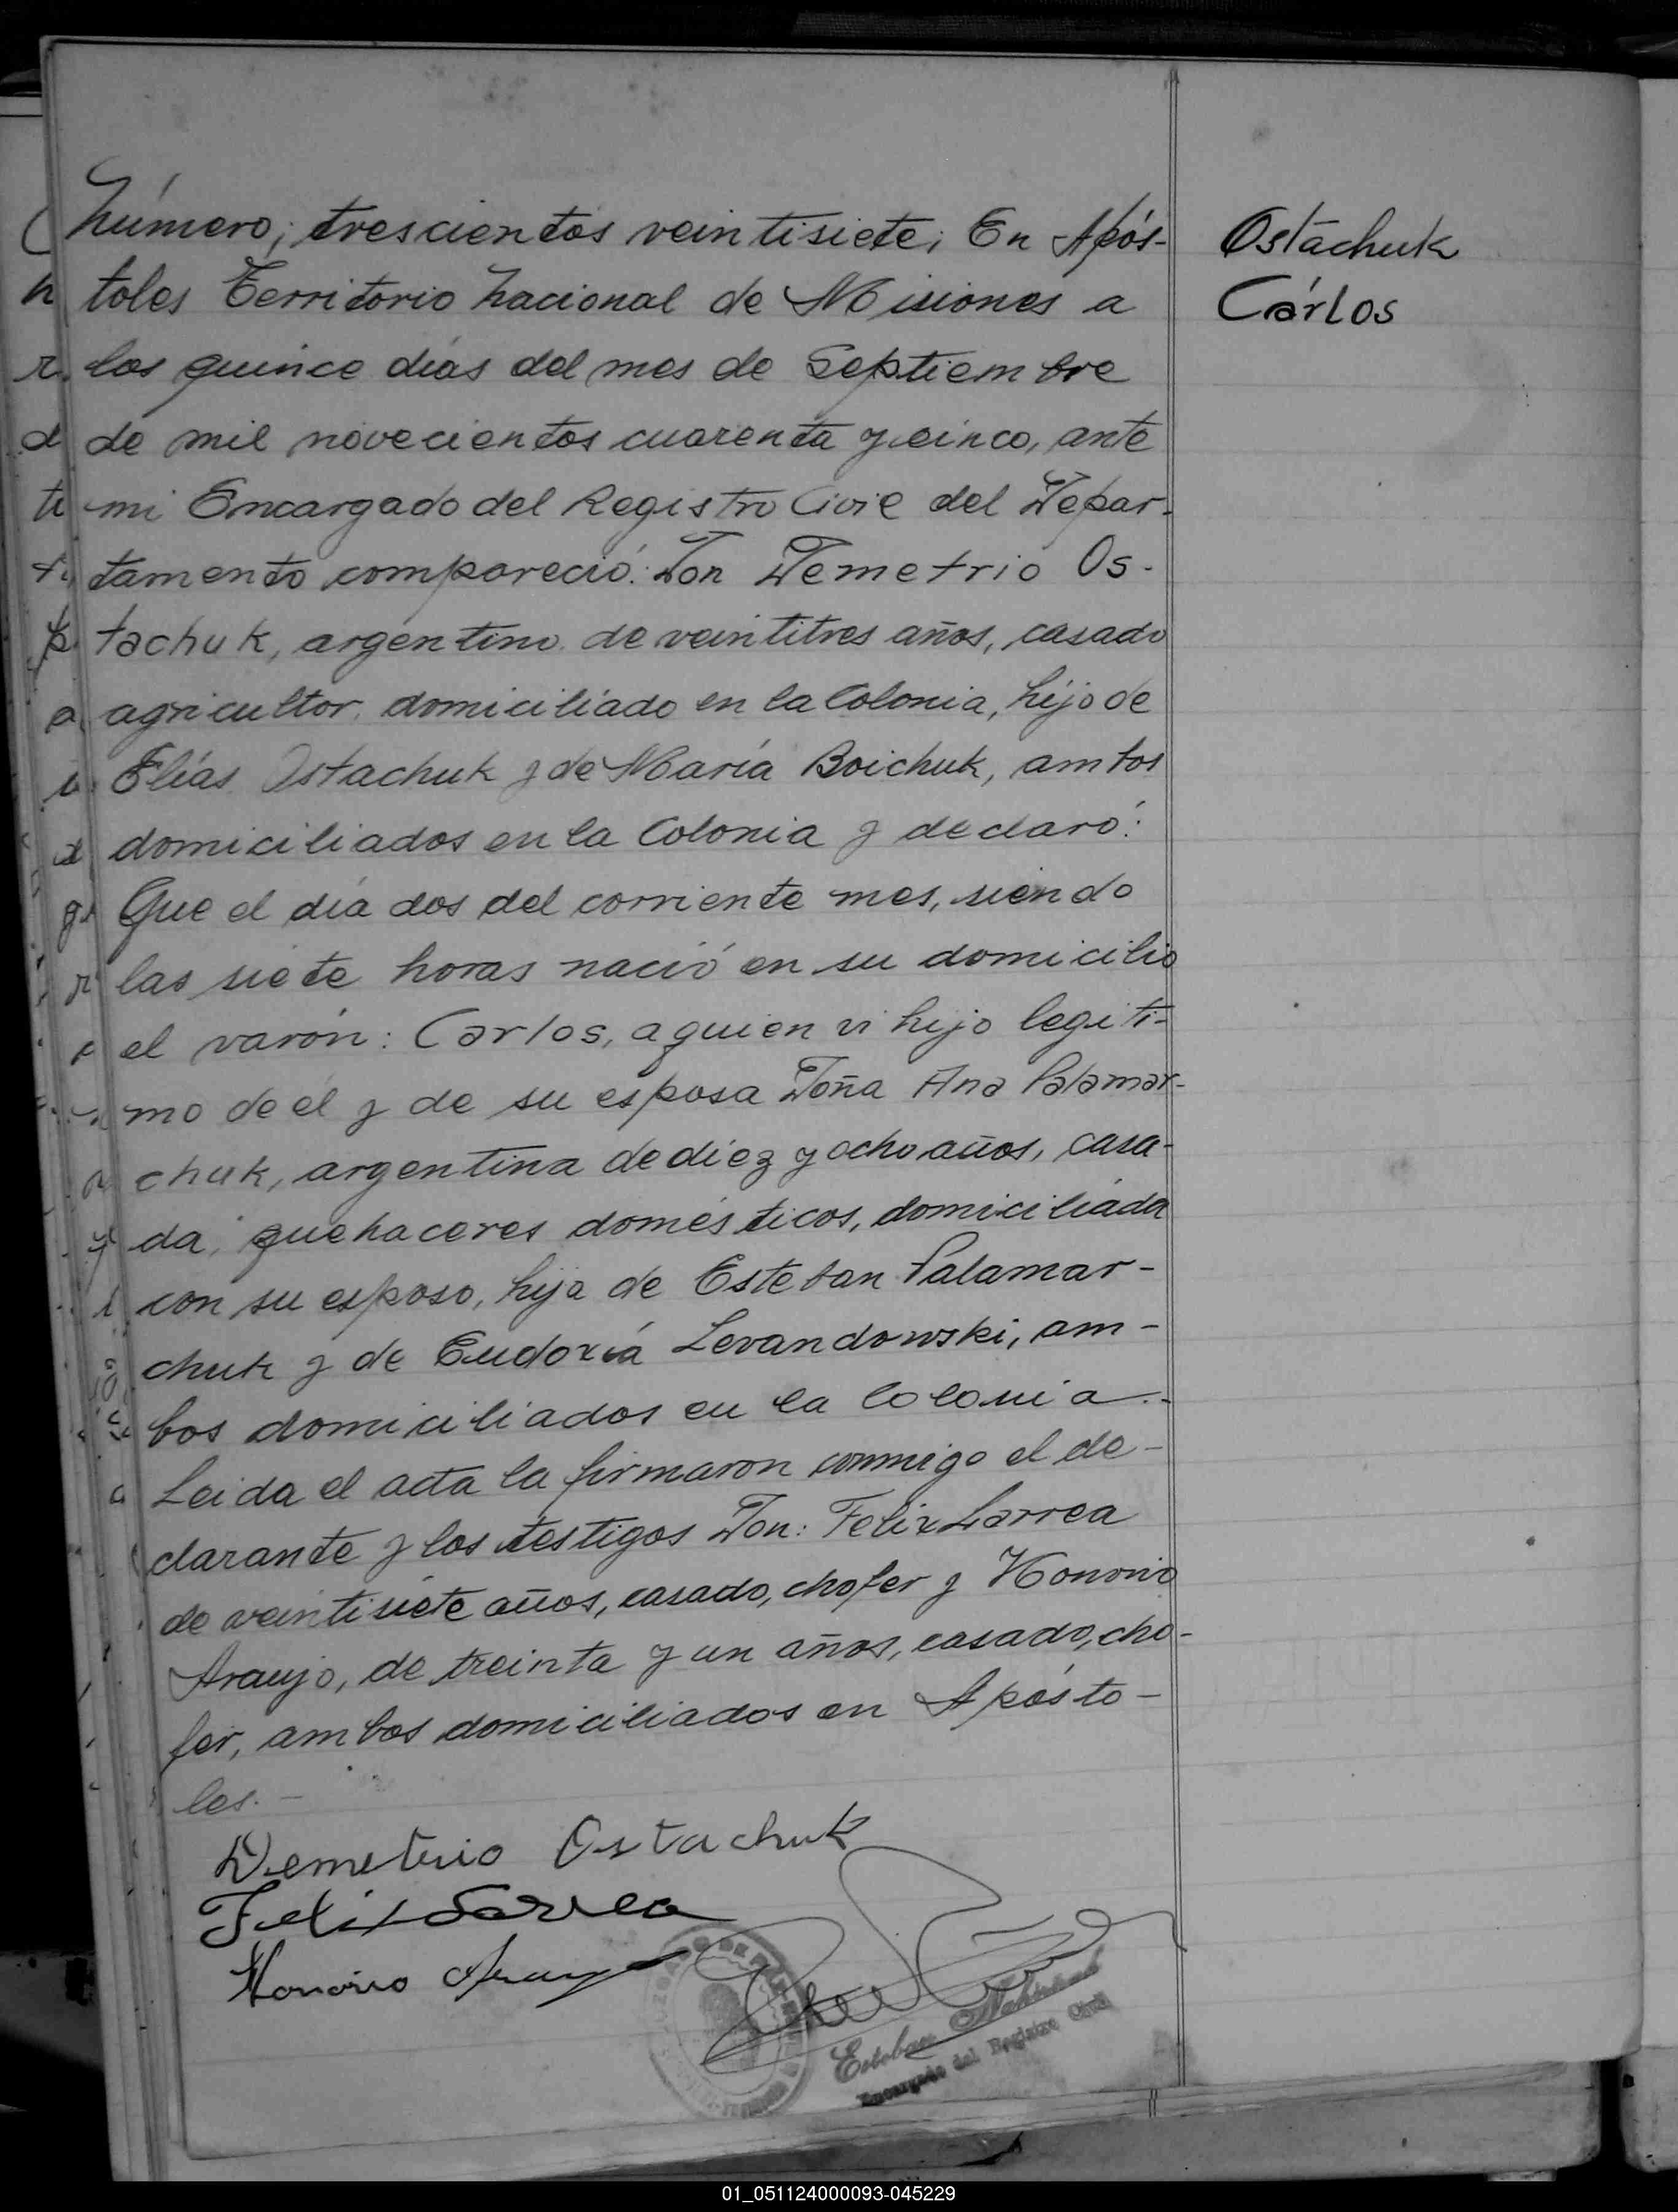 Número; trescientos veintisiete; En Após-
toles Territorio Nacional de Misiones a
los quince días del mes de Septiembre
de mil novecientos cuarenta y cinco, ante
mi Encargado del Registro Civil del Depar-
tamento compareció: Don Demetrio Os-
tachuk, argentino, de veintitres años, casado
agricultor, domiciliado en la Colonia, hijo de
Elías Ostachuk y de María Boichuk, ambos
domiciliados en la Colonia y declaró:
Que el día dos del corriente mes, siendo
las siete horas nació en su domicilio
el varón: Carlos, a quien vi hijo legíti-
mo de él y de su esposa Doña Ana Palamar-
chuk, argentina de diez y ocho años, casa-
da, quehaceres domésticos, domiciliada
con su esposo, hija de Esteban Palamar-
chuk y de Eudoxia Levandowski, am-
bos domiciliados en la Colonia.-
Leida el acta la firmaron conmigo el de-
clarante y los testigos Don: Felix Larrea
de veintisiete años, casado, chofer y Honorio
Araujo, de treinta y un años, casado, cho-
fer, ambos domiciliados en Apósto-
les.-
Demetrio Ostachuk
Felix Larrea
Honorio Araujo
Esteban
Encargado del Registro Civil
Ostachuk
Cárlos
01_051124000093-045229